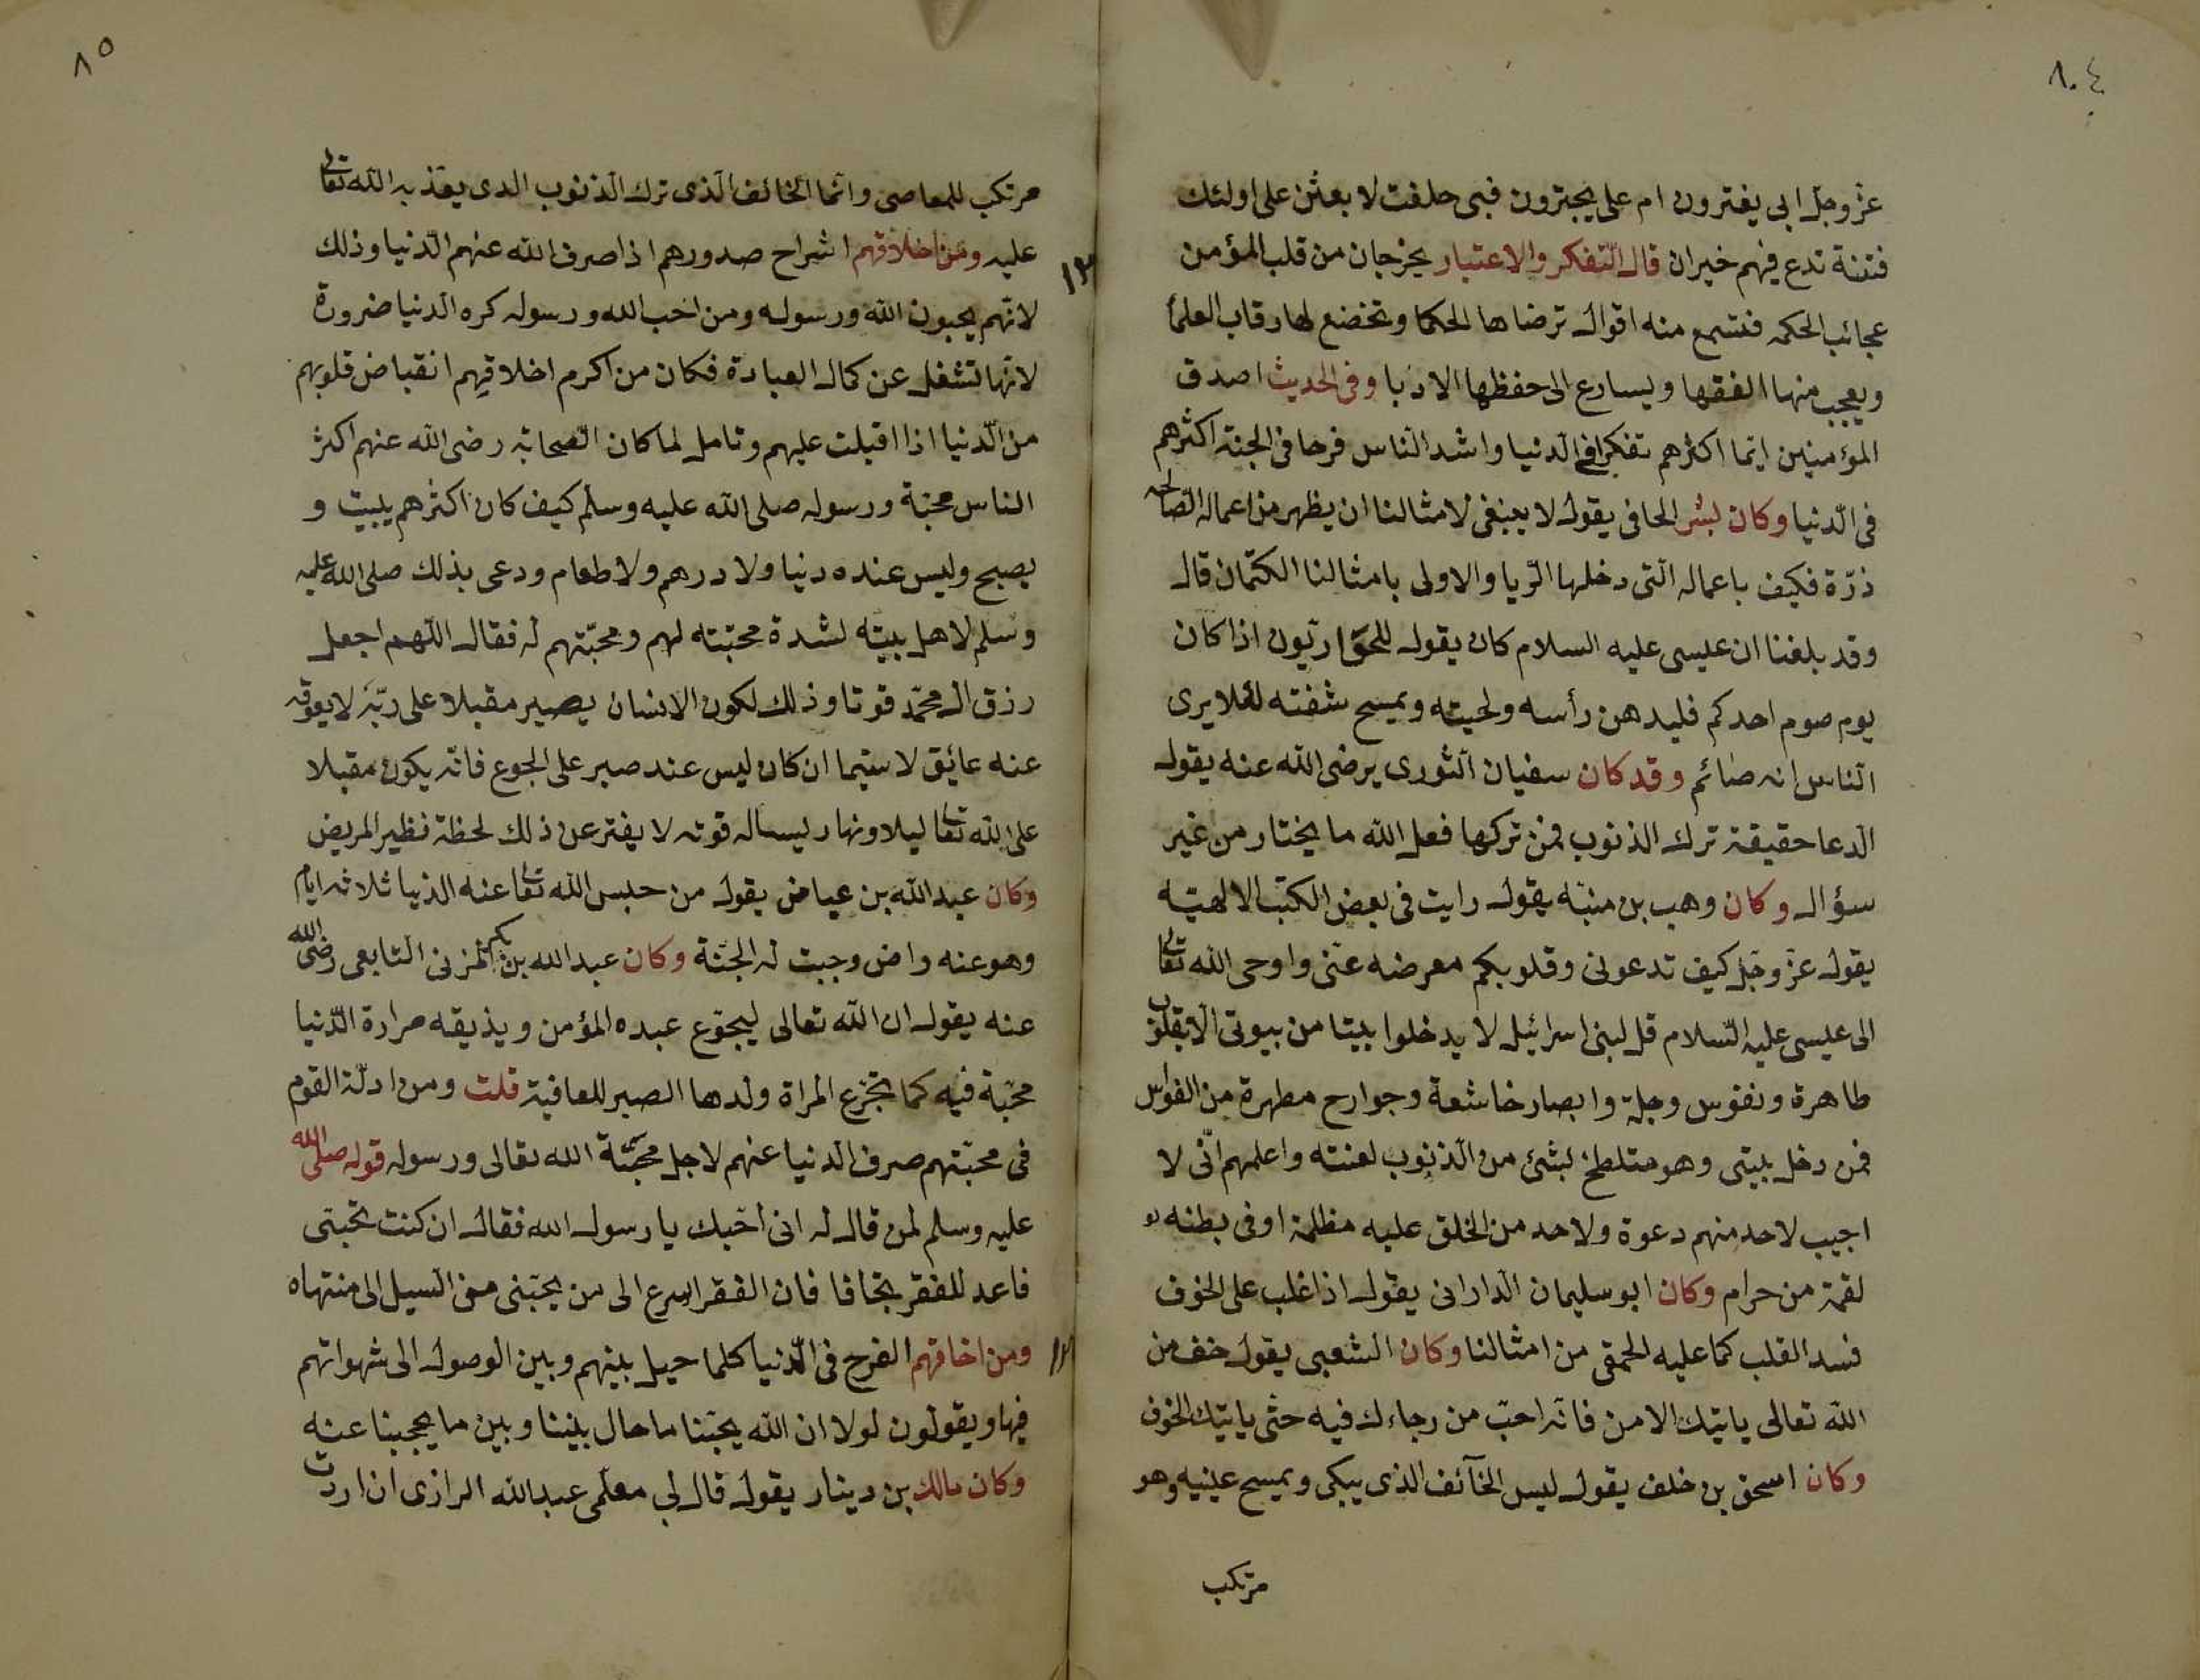 ٨٠٤
عزّ وجلّ ابي يفترون ام علي يجترون فبى حلفت لابعثن على اولئك
فتنة تدع فيهم حيران قال التّفكر والاعتبار يخرجان من قلب المؤمن
عجائب الحكمه فتسمع منه اقوال ترضاها الحكما وتخضع لها رقاب العلمآ
ويعجب منها الفقها ويسارع الى حفظها الادبا وفى الحديث اصدق
المؤمنين ايمّا اكثرهم تفكرا فى الدنيا واشد النّاس فرحا فى الجنة اكثرهم
فى الدّنيا وكان بشر الحافى يقول لا ينبغى لامثالنا ان يظهر من اعماله الصّالحه
ذرّة فكيف باعماله الّتى دخلها الرّيا والاولى بامثالنا الكتمان قال
وقد بلغنا ان عيسى عليه السلام كان يقول للحوّاريّون اذا كان
يوم صوم احدكم فليدهن رأسه ولحيته ويمسح شفته لئلا يرى
النّاس انه صائم وقد كان سفيان الثّورى يرضى الله عنه يقول
الّدعا حقيقة ترك الذنوب فمن تركها فعل الله ما يختار من غير
سؤال وكان وهب بن منبّه يقول رايت فى بعض الكتب الالهيّه
يقول عزّ وجّل كيف تدعونى وقلوبكم معرضه عنّى واوحى الله تعالى
الى عيسى عليه السّلام قل لبنى اسرائيل لا يدخلوا بيتا من بيوتى الا بقلوب
طاهرة ونفوس وجلة وابصار خاشعة وجوارح مطهرة من الفواحش
فمن دخل بيتى وهو متلطخ بشئ من الّذنوب لعنته واعلمهم انّى لا
اجيب لاحد منهم دعوة ولاحد من الخلق عليه مظلمة او فى بطنه
لقمة من حرام وكان ابو سليمان الدارانى يقول اذا غلب على الخوف
فسد القلب كما عليه الحمقى من امثالنا وكان الشعبى يقول خف من
الله تعالى ياتيك الامن فانّه احبّ من رجاءك فيه حتّى ياتيك الخوف
وكان اسحق بن خلف يقول ليس الخآئف الذى يبكى ويمسح عينيه وهو
مرتكب
٨٥
مرتكب للمعاصى وانّما الخائف الّذى ترك الذنوب الدى يعذبه الله تعالى
عليه ومن اخلاقهم انشراح صدورهم اذا صرف الله عنهم الدّنيا وذلك
١٣
لانّهم يحبون الله ورسوله ومن احب الله ورسوله كره الدنيا ضرورة
لانّها تشغل عن كمال العبادة فكان من اكرم اخلاقهم انقباض قلوبهم
من الّدنيا اذا اقبلت عليهم وتامل لما كان الصّحابة رضى الله عنهم اكثر
الناس محبّة ورسوله صلى الله عليه وسلّم كيف كان اكثرهم يبيت و
يصبح وليس عنده دنيا ولا درهم ولا طعام ودعى بذلك صلى الله عليه
وسلم لاهل بيته لشدة محبّته لهم ومحبّتهم له فقال اللّهم اجعل
رزق ال محمّد قوتا وذلك لكون الانسان يصير مقبلا على ربّه لا يعوقه
عنه عايق لا سيّما ان كان ليس عند صبر على الجوع فانّه يكون مقبلا
على الله تعالى ليلا ونهار ليساله قوته لا يفتر عن ذلك لحظة نظير المريض
وكان عبد الله بن عياض يقول من حبس الله تعالى عنه الدّنيا ثلاثه ايام
وهو عنه راض وجبت له الجنّة وكان عبد الله بن بكر المزنى التابعى رضى الله
عنه يقول ان الله تعالى ليجوّع عبده المؤمن ويذيقه مرارة الدّنيا
محبّة فيه كما تجرّع المراة ولدها الصبر للعافية قلت ومن ادلّة القوم
فى محبّتهم صرف الدنيا عنهم لاجل محبّة الله تعالى ورسوله قوله صلى الله
عليه وسلم لمن قال له انى احّبك يا رسول الله فقال ان كنت تحبّنى
فاعد للفقر تجافا فان الفقر اسرع الى من يحبّنى من السيل الى منتهاه
ومن اخاقهم الفرح فى الدّنيا كلما حيل بينهم وبين الوصول الى شهواتهم
فيها ويقولون لولا ان الله يحبّنا ما حال بيننا وبين ما يحجبنا عنه
وكان مالك بن دينار يقول قال لى معلّمى عبد الله الرازى ان اردت